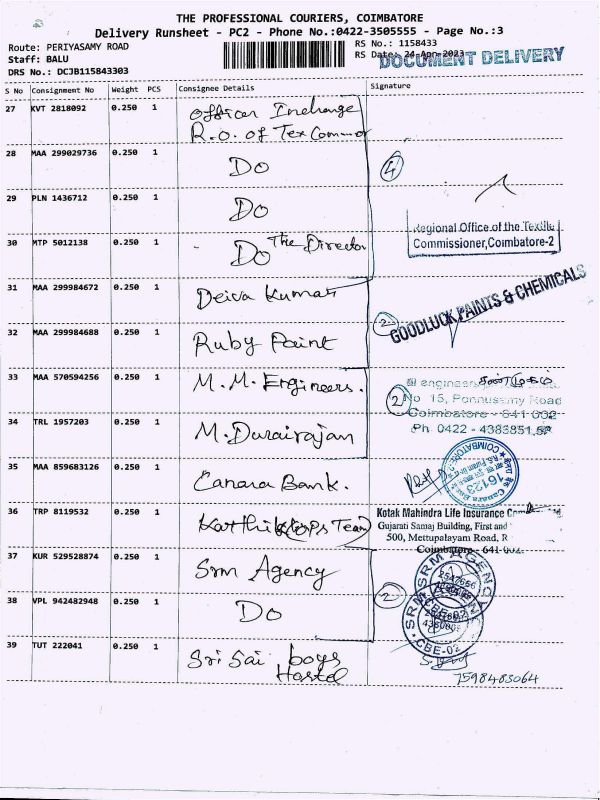 THE PROFESSIONAL COURIERS, COIMBATORE
Delivery Runsheet - PC2 - Phone No.:0422-3505555 - Page No.:3
Route: PERIYASAMY ROAD
RS No.: 1158433
Staff: BALU
RS Date: 24-Apr-2023
DOCUMENT DELIVERY
DRS No.: DCJB115843303
S No Consignment No Weight PCS Consignee Details Signature
27 KVT 2818092 0.250 1 Officer Incharge
R.o. of Tex Commor
28 MAA 299029736 0.250 1 Do
4
29 PLN 1436712 0.250 1 Do
30 MTP 5012138 0.250 1 - Do The Director
Regional Office of the Textile
Commissioner, Coimbatore-2
31 MAA 299984672 0.250 1 Deiva Kumar
GOODLUCK PAINTS & CHEMICALS
2
32 MAA 299984688 0.250 1 Ruby Paint
33 MAA 570594256 0.250 1 M.M. Engineers.
2
No 15, Ponnusamy Road
Coimbatore - 641 002
Ph 0422 - 4383851
34 TRL 1957203 0.250 1 M. Durairajan
35 MAA 859683126 0.250 1 Canara Bank.
COIMBATORE
16123
36 TRP 8119532 0.250 1 Karthik (OPs Team)
Kotak Mahindra Life Insurance
Gujarati Samaj Building, First and
500, Mettupalayam Road, R
Coimbatore - 641-002.
37 KUR 529528874 0.250 1 Srm Agency
SRM AGENCY
2547666
38 VPL 942482948 0.250 1 Do
2
SRM AGENCY
CBE-02
39 TUT 222041 0.250 1 Sri Sai boys
Hostel
7598483064